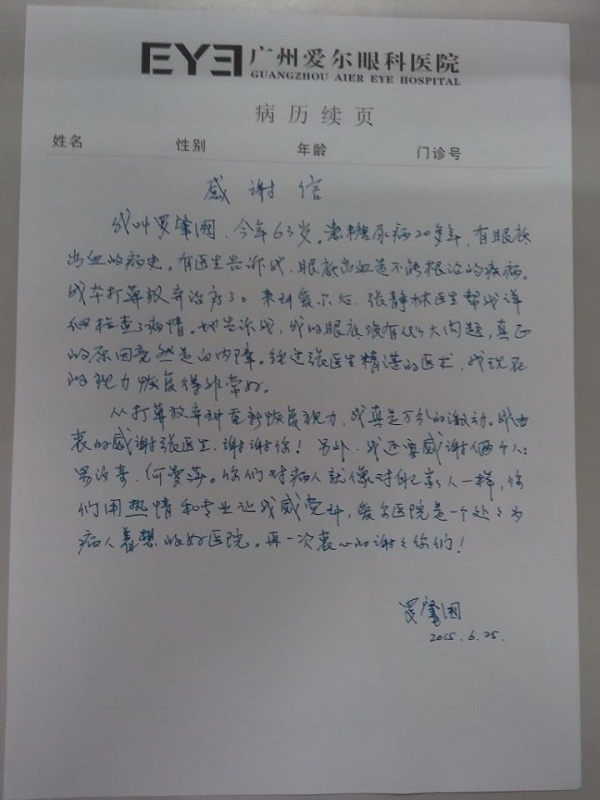 EYE 广州爱尔眼科医院
GUANGZHOU AIER EYE HOSPITAL
病历续页
姓名 性别 年龄 门诊号
感谢信
我叫罗肇国,今年63岁。患糖尿病20多年,有眼底
出血的病史。有医生告诉我,眼底出血是不能根治的疾病。
我本打算放弃治疗了。来到爱尔后,张静林医生帮我详
细检查了病情。她告诉我,我的眼底没有什么大问题,真正
的原因竟然是白内障。经过张医生精湛的医术,我现在
的视力恢复得非常好。
从打算放弃到重新恢复视力,我真是万分的激动。我由
衷的感谢张医生,谢谢您!另外,我还要感谢俩个人:
你们对病人就像对自己亲人一样,你
们用热情和专业让我感觉到,爱尔医院是一个处々为
病人着想的好医院。再一次衷心的谢々你们!
罗肇国
2015.6.25.